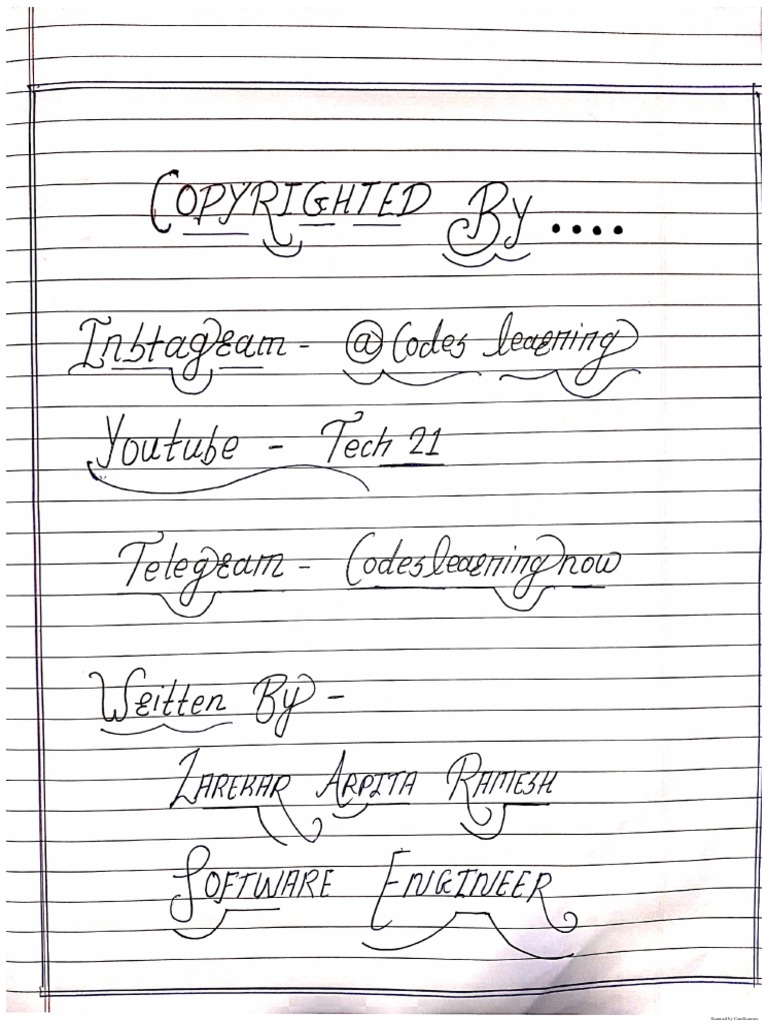 COPYRIGHTED By ....
Instagram - @Codes learning
Youtube - Tech 21
Telegram - Codeslearningnow
Written By -
ZAREKAR ARPITA RAMESH
SOFTWARE ENGINEER
Scanned by CamScanner